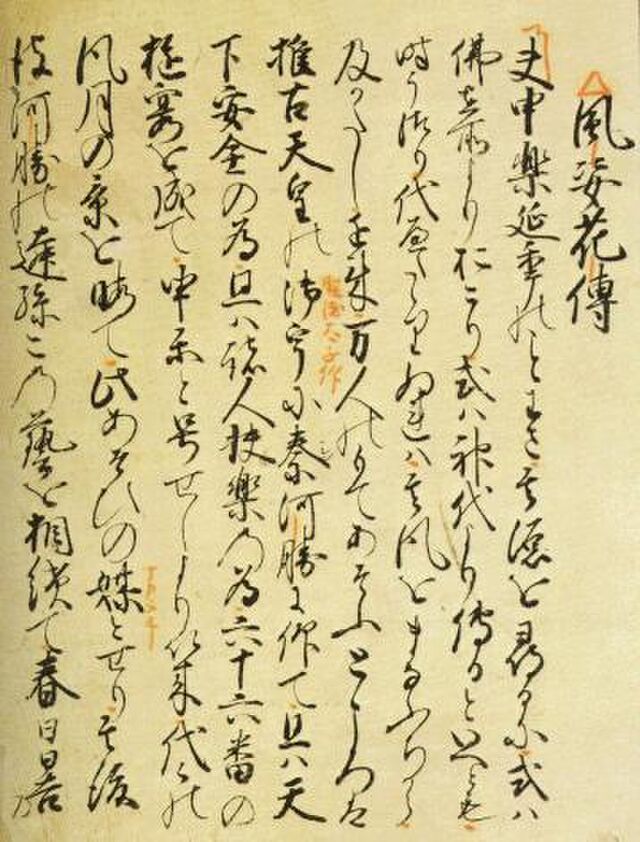 風姿花傳
夫申樂延年のことわさ其源を尋るに或ハ
佛在所よりおこり或ハ神代より傳るといへとも
時うつり代へたゝりぬれハ其風をまなふちから
及かたし近来万人のもてあそふところハ
推古天皇の御宇に秦河勝に仰て且ハ天
下安全の為且ハ諸人快樂の為六十六番の
遊宴を成て申樂と号せしより以来代々の
風月の景を假て此あそひの媒とせり其後
彼河勝の遠孫この藝を相續て春日日吉の